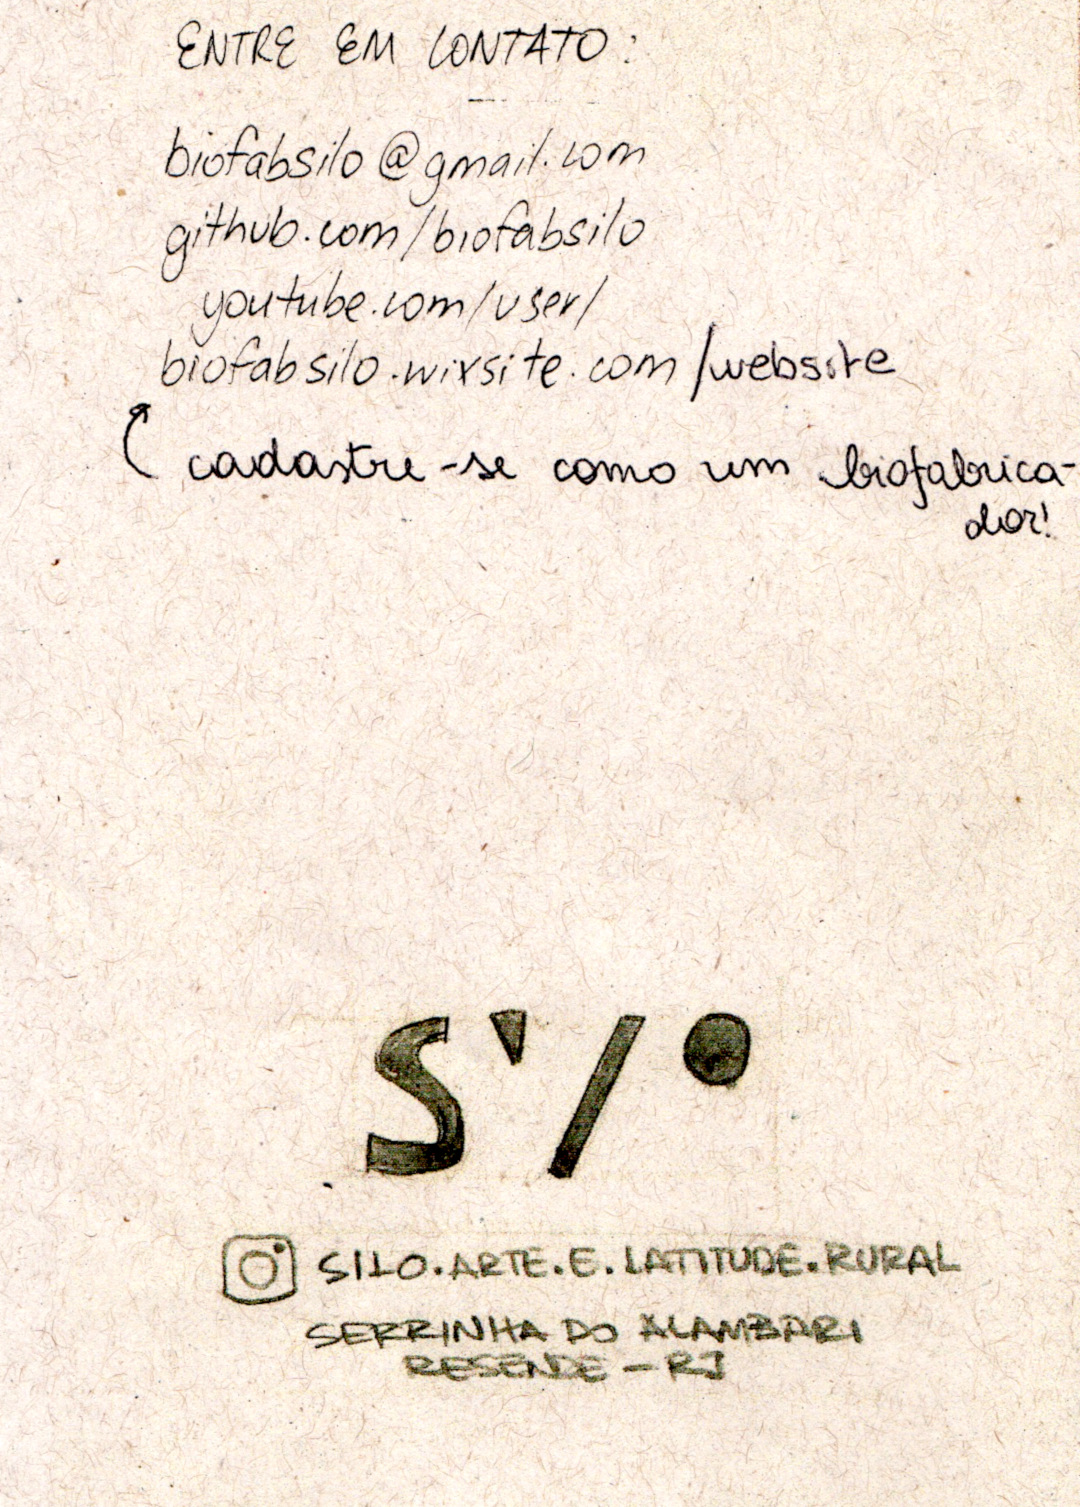 ENTRE EM CONTATO:
biofabsilo@gmail.com
github.com/biofabsilo
youtube.com/user/
biofabsilo.wixsite.com/website
cadastre-se como um biofabrica-
dor!
S'/O
SILO.ARTE.E.LATITUDE.RURAL
SERRINHA DO ALAMBARI
RESENDE - RJ